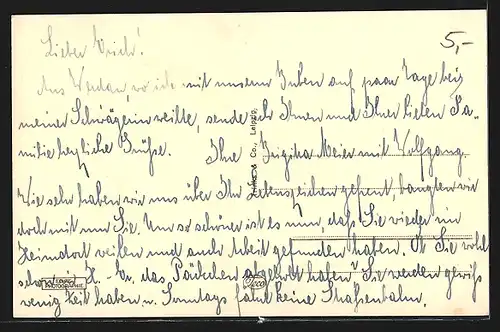 5,-
Lieber Erich!
Aus Werdau, wo ich mit unserm Buben auf paar Tage bei
meiner Schwägerin weilte, sende ich Ihnen und Ihrer lieben Fa-
milie herzliche Grüße. Ihre Meier mit Wolfgang.
Wie sehr haben wir uns über Ihr Lebenszeichen gefreut, bangten wir
doch mit um Sie. Um so schöner ist es nun, daß Sie wieder im
Heimdorf weilen und auch Arbeit gefunden haben. Ob Sie wohl
schon das Päckchen abgeholt haben? Sie werden gewiß
wenig Zeit haben u. Sonntags fährt keine Straßenbahn.
& Co., Leipzig